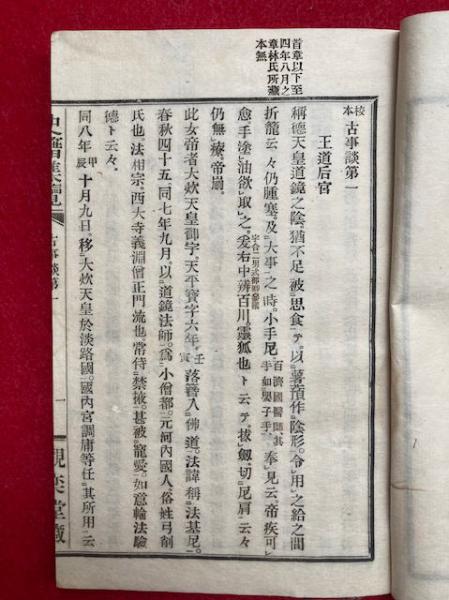 首章以下至
四年八月之
章林氏所藏
本無
校本 古事談第一
王道后宮
稱德天皇道鏡之陰。猶不足被思食テ。以薯蕷作陰形。令用之給之間。
折籠云々。仍腫塞。及大事之時。小手尼 百濟國醫師其手如嬰子手云 奉見云。帝疾可
愈。手塗油欲取之。爰右中辨百川。靈狐也ト云テ。拔劒。切尼肩云々。
仍無療。帝崩。
此女帝者。大炊天皇御宇。天平寶字六年 壬寅 落餝。入佛道。法諱稱法基尼。
春秋四十五。同七年九月。以道鏡法師。爲小僧都。元河內國人。俗姓弓削
氏也。法相宗。西大寺義淵僧正門流也。常侍禁掖。甚被寵愛。如意輪法驗
德ト云々。
同八年 甲辰 十月九日。移大炊天皇於淡路國。國內官調庸等。任其所用云
古事談第一
一
觀奕堂藏